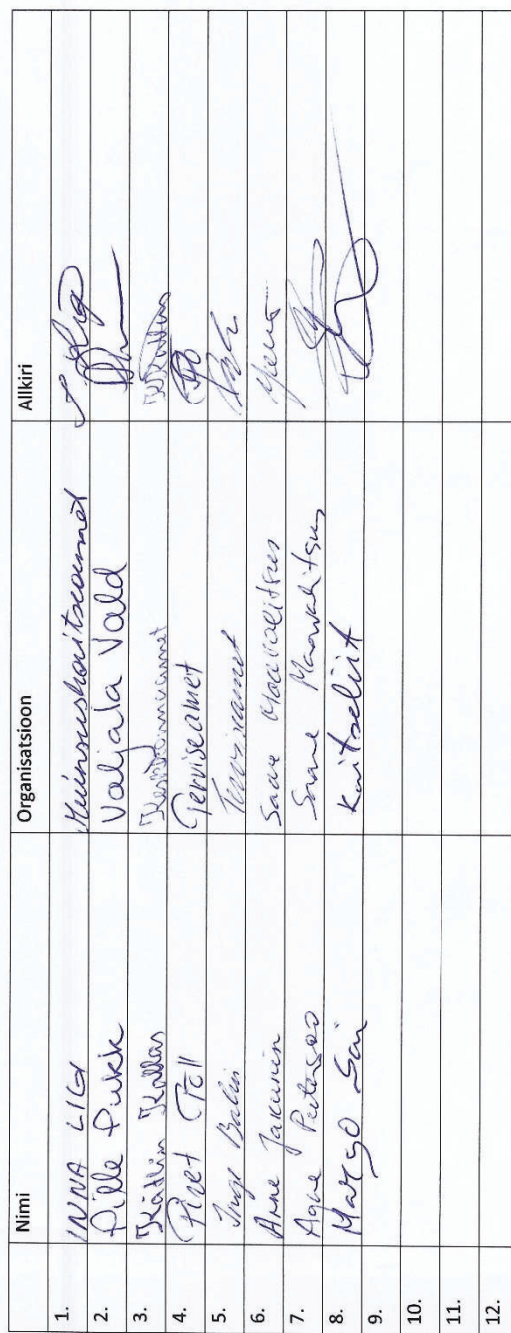 Nimi Organisatsioon Allkiri
1. INNA LIGI Muinsuskaitseamet
2. Pille Pukk Valjala Vald
3. Kätlin Kallas Keskkonnaamet
4. Piret Toll Terviseamet
5. Inge Terviseamet
6. Anne Saare Maavalitsus
7. Agne Peetersoo Saare Maavalitsus
8. Margo Sai Kaitseliit
9.
10.
11.
12.